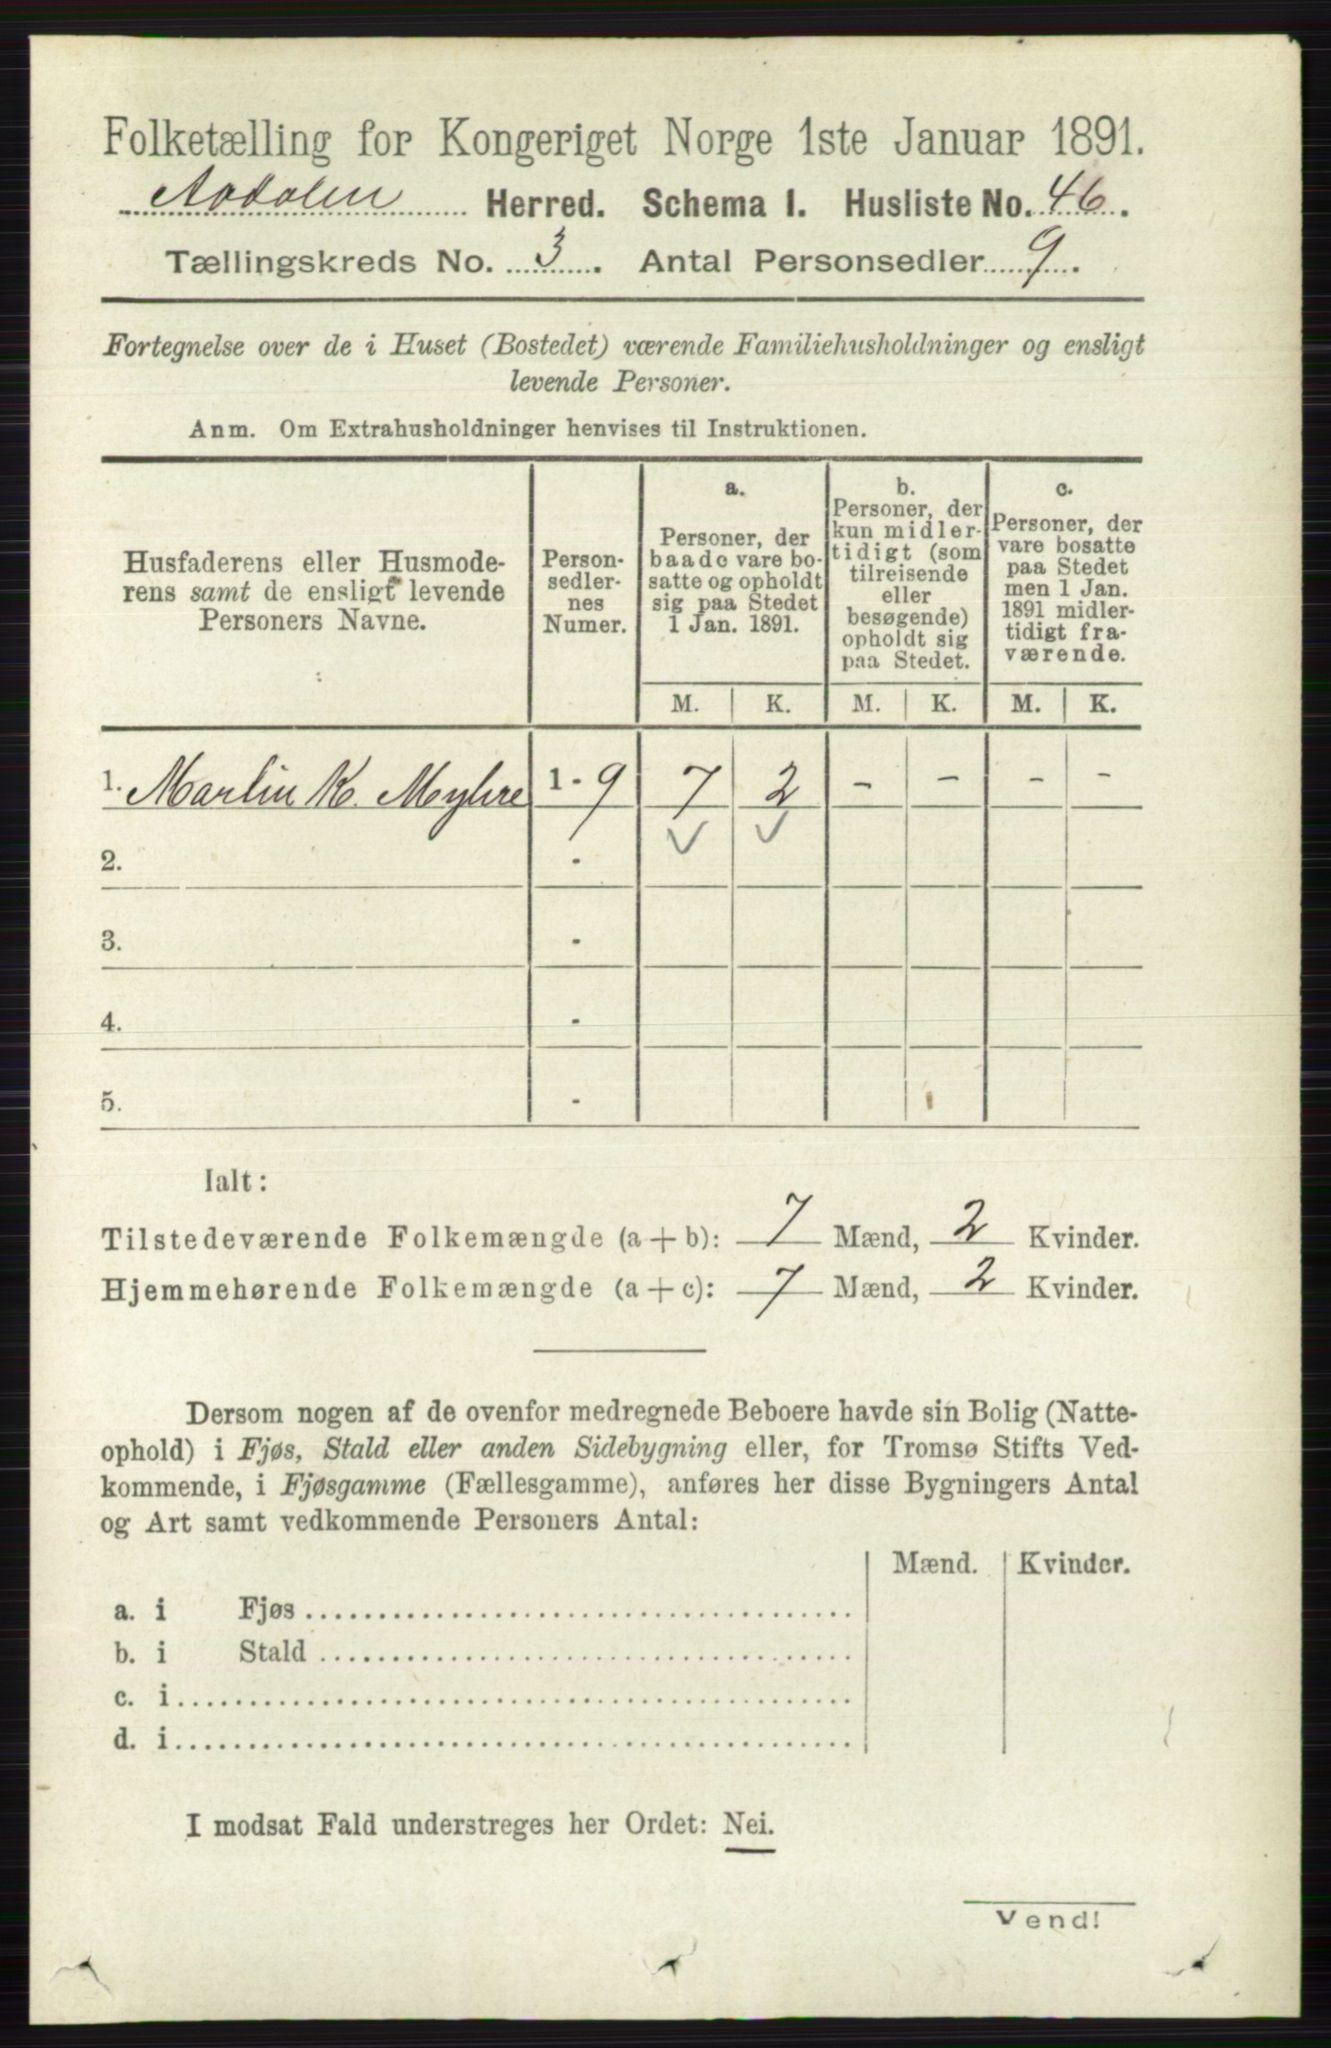 Folketælling for Kongeriget Norge 1ste Januar 1891.
Aadalen Herred. Schema 1. Husliste No. 46.
Tællingskreds No. 3. Antal Personsedler 9.
Fortegnelse over de i Huset (Bostedet) værende Familiehusholdninger og ensligt
levende Personer.
Anm. Om Extrahusholdninger henvises til Instruktionen.
Husfaderens eller Husmode-
rens samt de ensligt levende
Personers Navne.
Person-
sedler-
nes
Numer.
a.
Personer, der
baade vare bo-
satte og opholdt
sig paa Stedet
1 Jan. 1891.
b.
Personer, der
kun midler-
tidigt (som
tilreisende
eller
besøgende)
opholdt sig
paa Stedet.
c.
Personer, der
vare bosatte
paa Stedet
men 1 Jan.
1891 midler-
tidigt fra-
værende.
M. K. M. K. M. K.
1. Martin K. Myhre 1 - 9 7 2 - - - -
2. -
3. -
4. -
5. -
Ialt:
Tilstedeværende Folkemængde (a + b): 7 Mænd, 2 Kvinder.
Hjemmehørende Folkemængde (a + c): 7 Mænd, 2 Kvinder.
Dersom nogen af de ovenfor medregnede Beboere havde sin Bolig (Natte-
ophold) i Fjøs, Stald eller anden Sidebygning eller, for Tromsø Stifts Ved-
kommende, i Fjøsgamme (Fællesgamme), anføres her disse Bygningers Antal
og Art samt vedkommende Personers Antal:
Mænd. Kvinder.
a. i Fjøs
b. i Stald
c. i
d. i
I modsat Fald understreges her Ordet: Nei.
Vend!